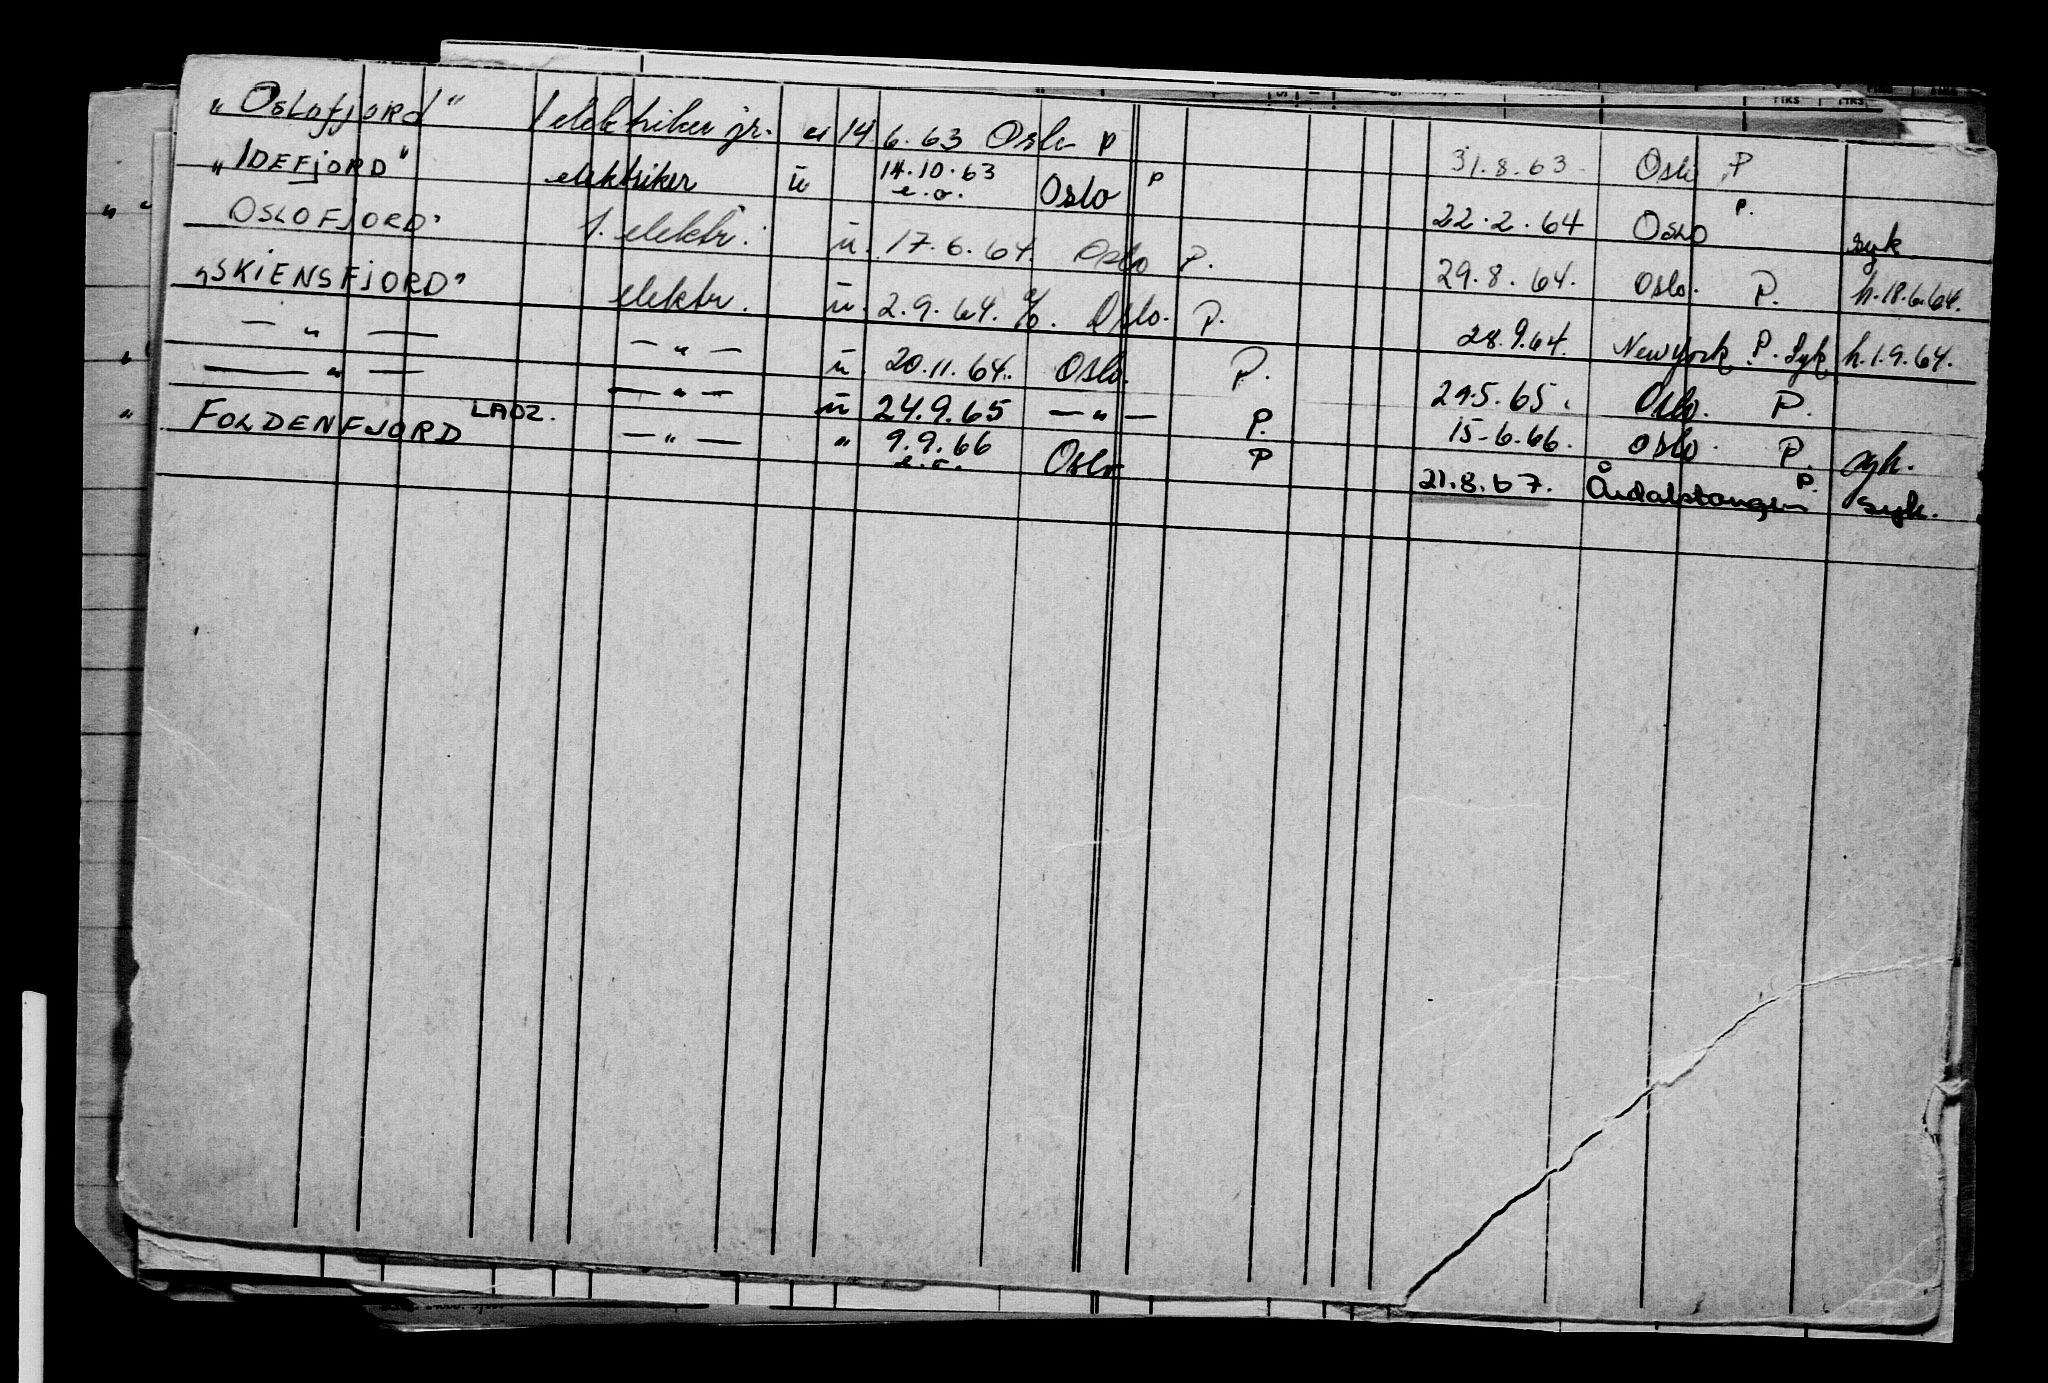 „Oslofjord" 1 elektriker jr. u 14 6.63 Oslo P 31.8.63. Oslo P
„IDEFJORD" elektriker ü 14.10.63 e.o. Oslo P 22.2.64 Oslo P. syk
OSLOFJORD" 1. elektr. ü. 17.6.64. Oslo P. 29.8.64. Oslo. P. h.18.6.64.
„SKIENSFJORD" elektr. ü. 2.9.64. Oslo. P. 28.9.64. New york P. Syk h.1.9.64.
— „ — — „ — ü. 20.11.64. Oslo. P. 29.5.65. Oslo. P.
— „ — — „ — ü 24.9.65 — „ — P. 15-6.66. Oslo. P. syk.
FOLDENFJORD LAOZ. — „ — „ 9.9.66 e.o. Oslo P 21.8.67. Årdalstangen P. syk.